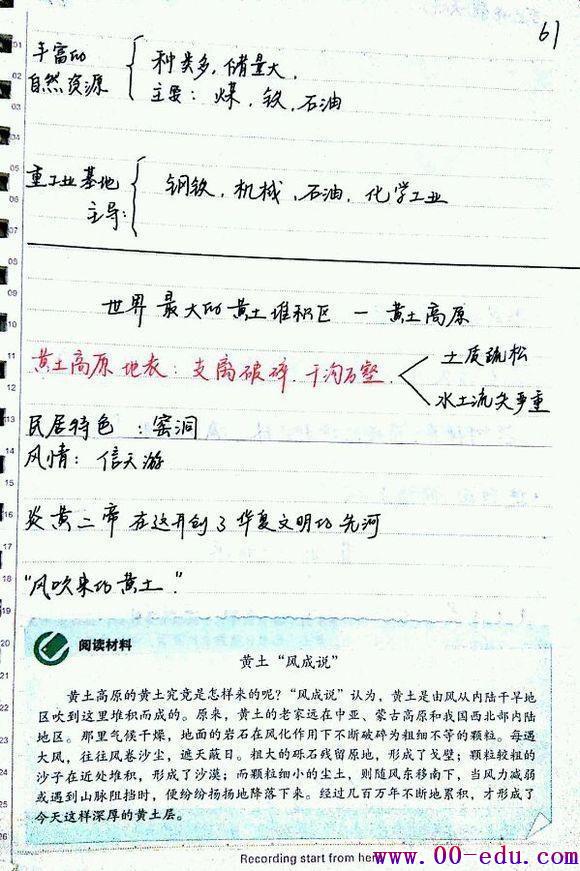 61
丰富的
自然资源
种类多,储量大,
主要:煤,铁,石油
重工业基地
主导:
钢铁,机械,石油,化学工业
世界最大的黄土堆积区—黄土高原
黄土高原地表:支离破碎,千沟万壑
土质疏松
水土流失严重
民居特色:窑洞
风情:信天游
炎黄二帝在这开创了华夏文明的先河
"风吹来的黄土"
阅读材料
黄土“风成说”
黄土高原的黄土究竟是怎样来的呢?“风成说”认为,黄土是由风从内陆干旱地
区吹到这里堆积而成的。原来,黄土的老家远在中亚、蒙古高原和我国西北部内陆
地区。那里气候干燥,地面的岩石在风化作用下不断破碎为粗细不等的颗粒。每遇
大风,往往风卷沙尘,遮天蔽日。粗大的砾石残留原地,形成了戈壁;颗粒较粗的
沙子在近处堆积,形成了沙漠;而颗粒细小的尘土,则随风东移南下,当风力减弱
或遇到山脉阻挡时,便纷纷扬扬地降落下来。经过几百万年不断地累积,才形成了
今天这样深厚的黄土层。
Recording start from here
www.00-edu.com